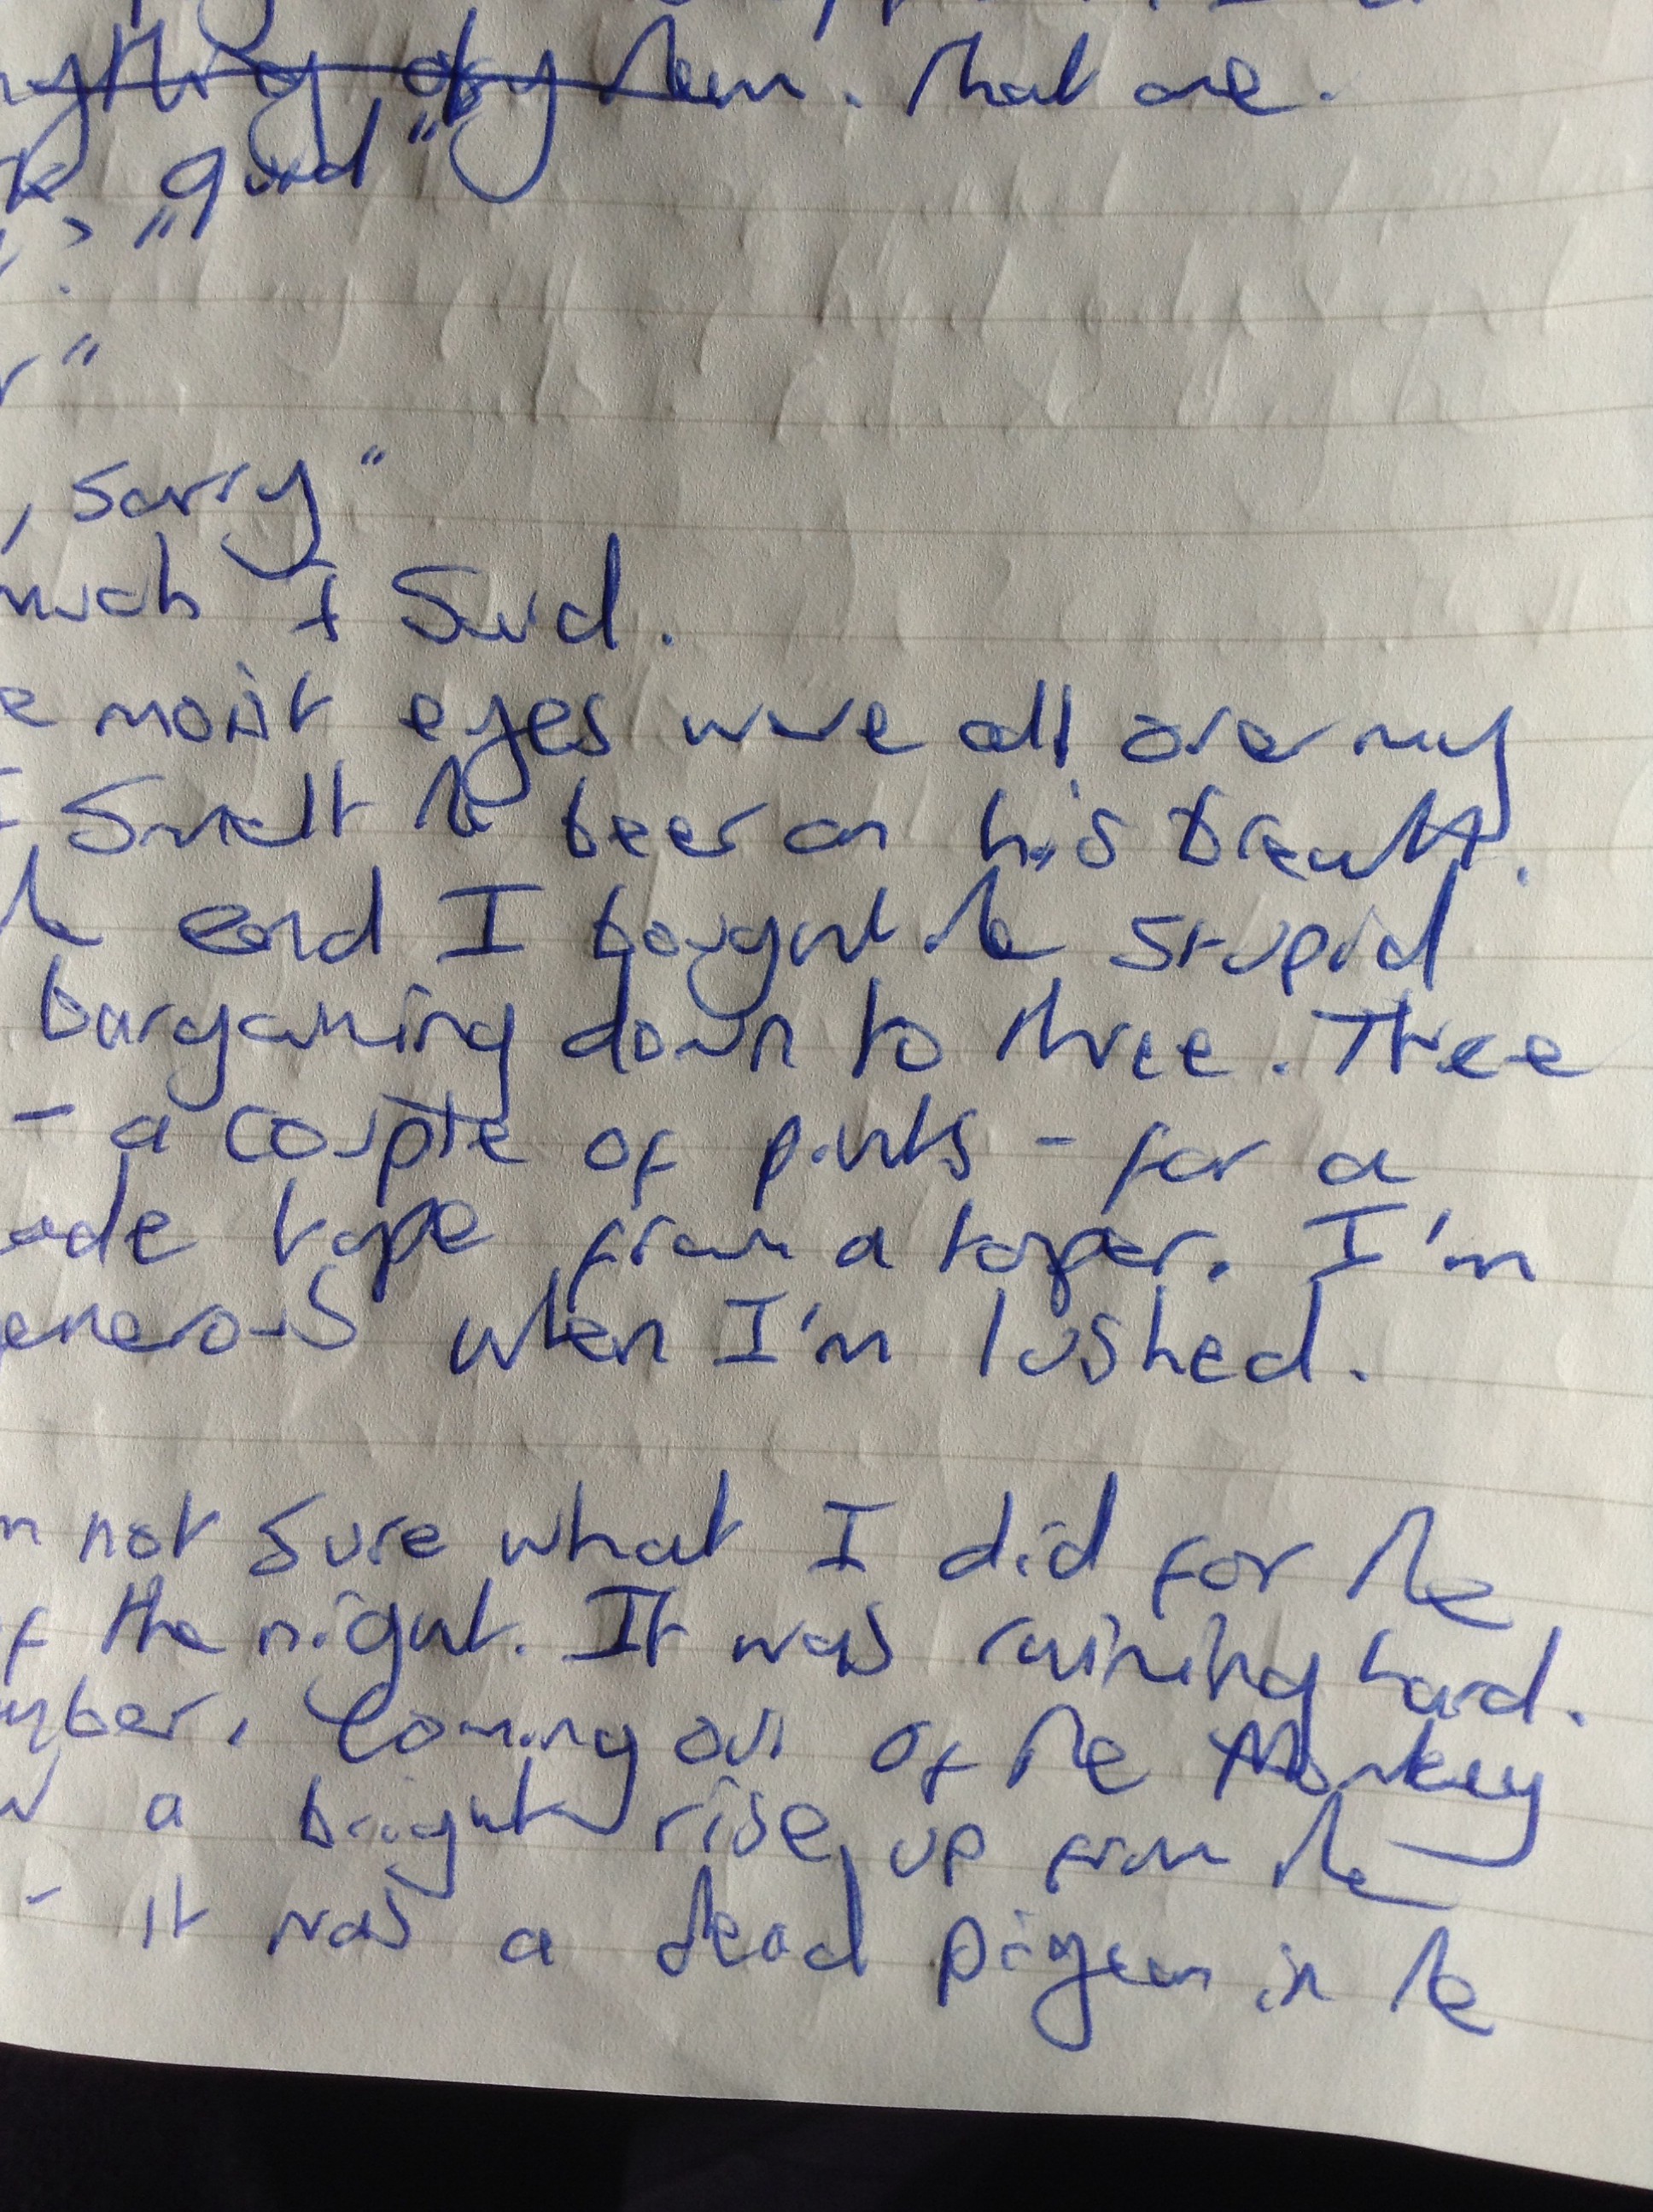 them. that one.
quid"
sorry"
much I said.
moist eyes were all over my
smelt the beer on his breath.
end I bought the stupid
bargaining down to three. Three
- a couple of pints - for a
tape from a toper. I'm
when I'm lushed.
not sure what I did for the
the night. It was raining hard.
Coming out of the Monkey
a bright rise up from the
- it was a dead pigeon in the